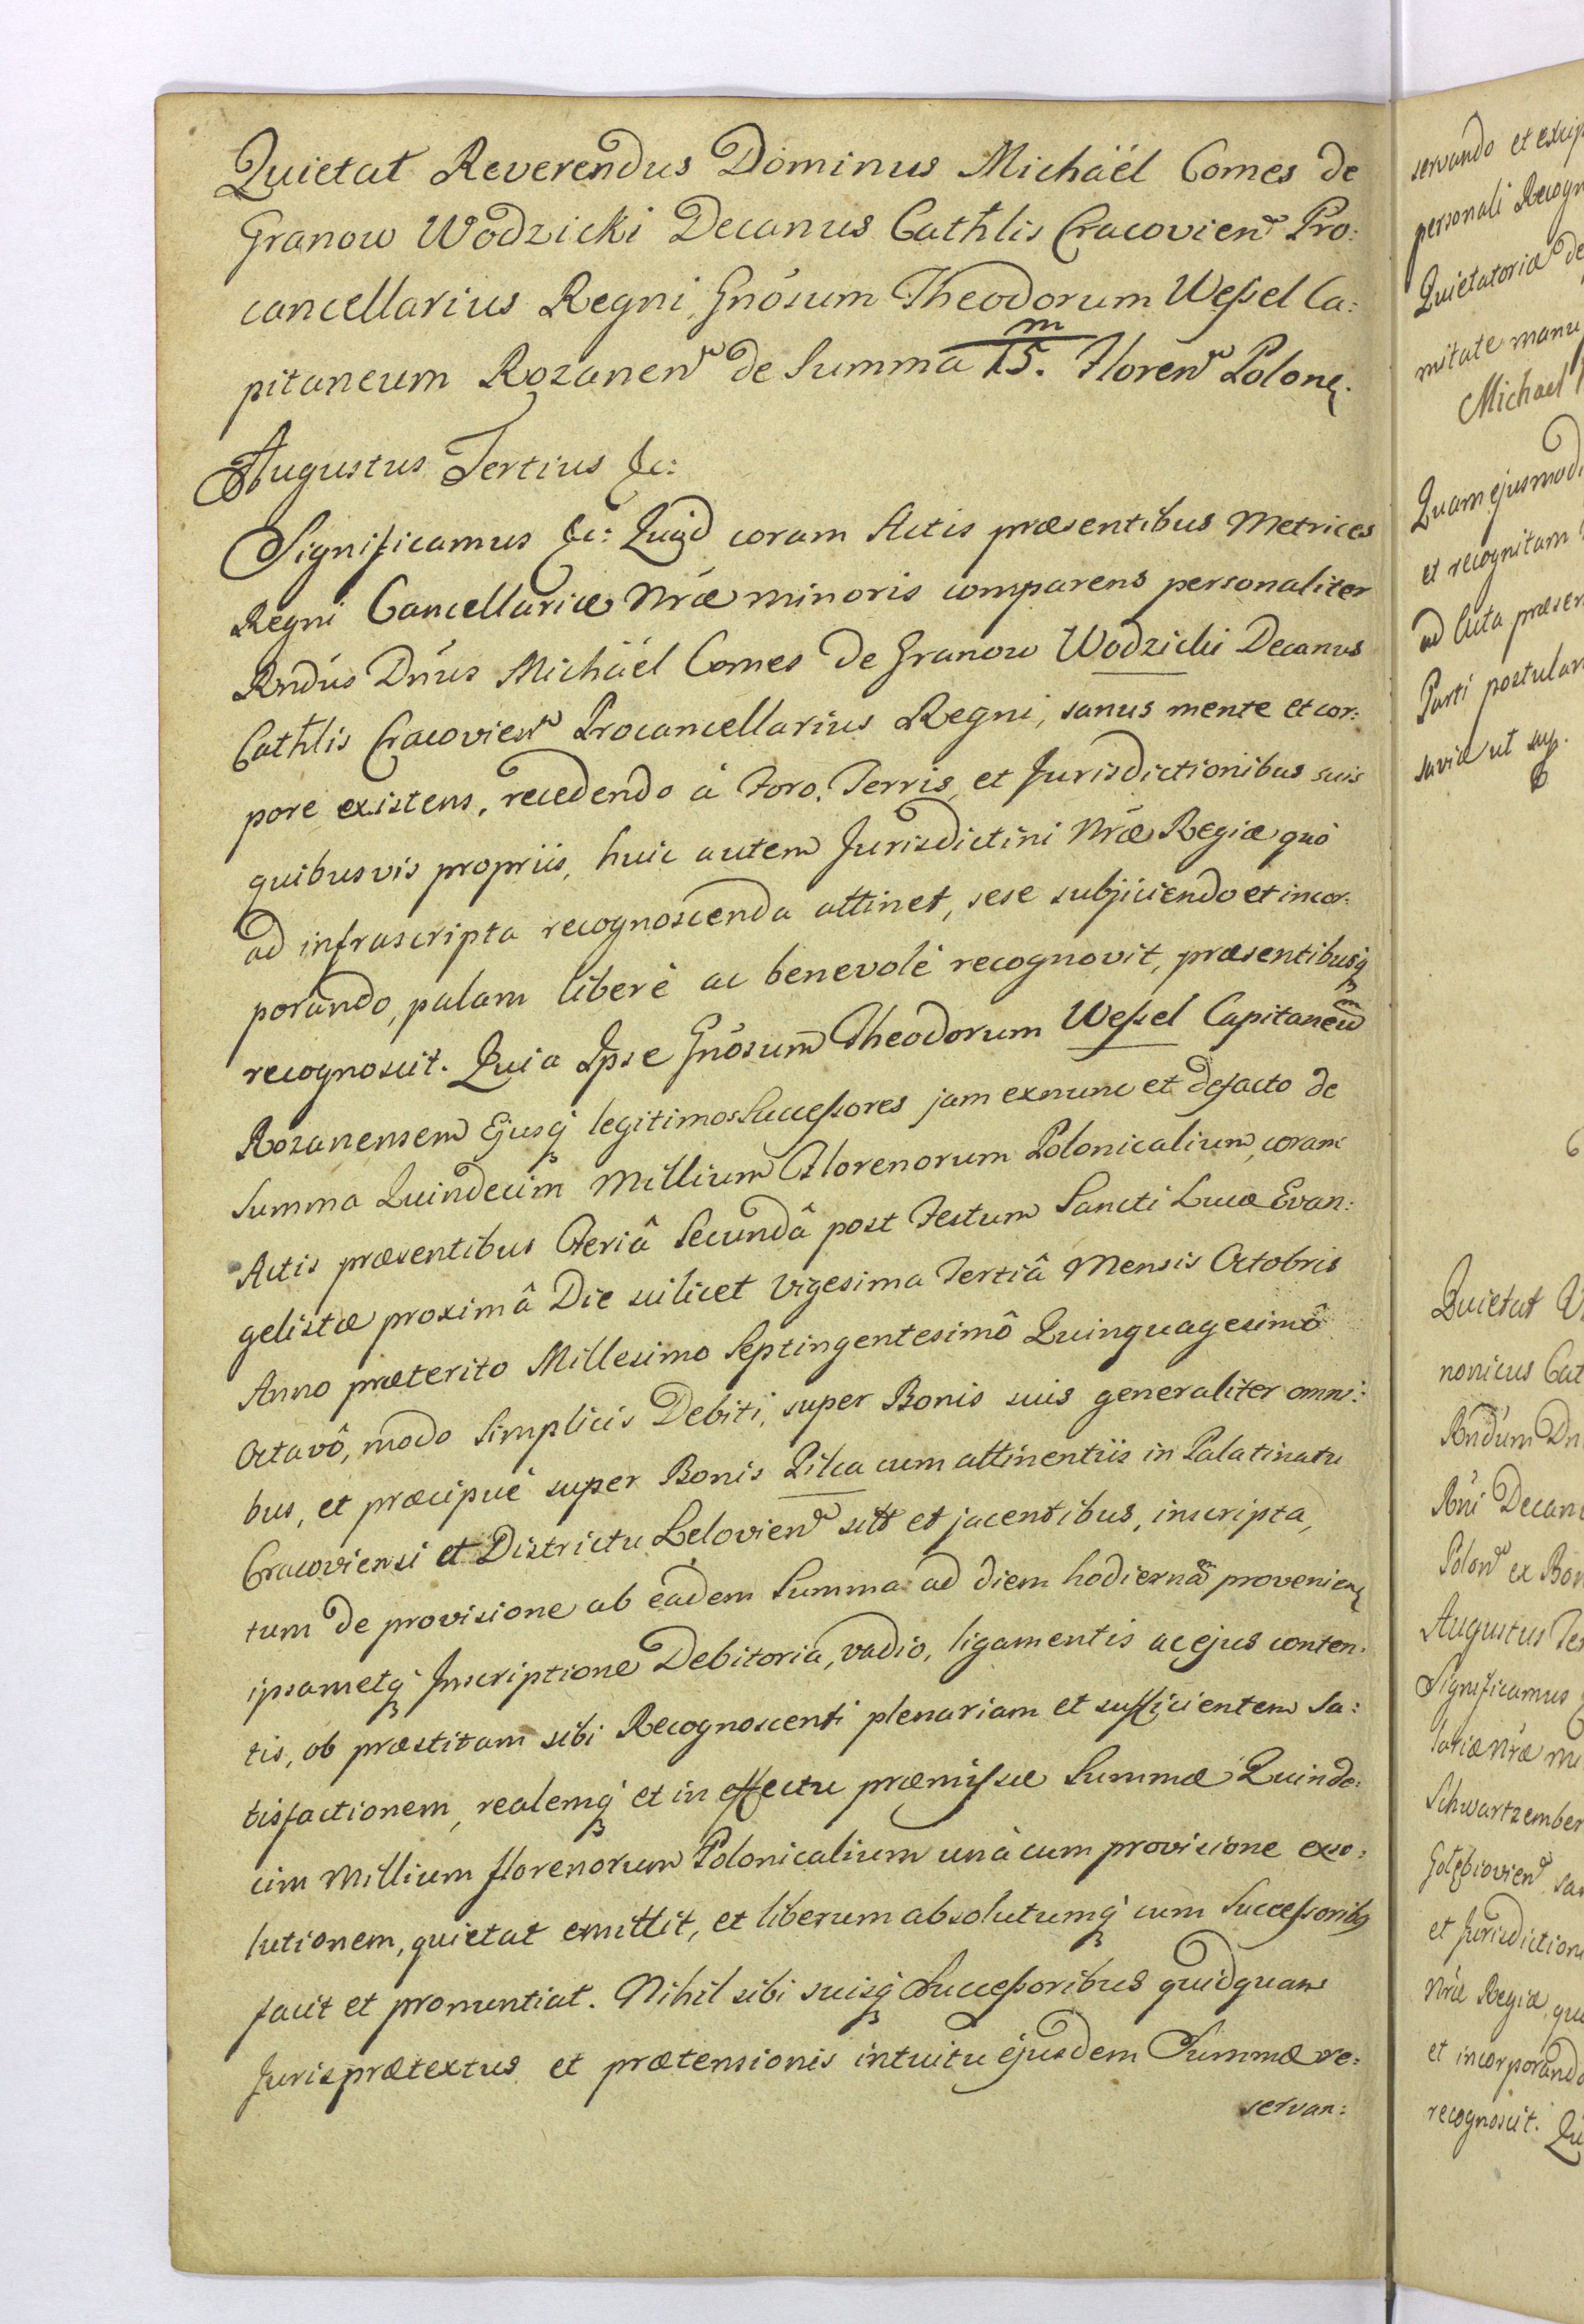 Quietat Reverendus Dominus Michäel Comes de
Granow Wodzicki Decanus Cathlis Cracovien Pro:
cancellarius Regni, Gnosum Theodorum Weßel Ca:
pitaneum Rozanen de Summa 15.m Floren Polon.
Augustus Tertius &c:
Significamus &c: Quod coram Actis præsentibus Metrices
Regni Cancellariæ Nræ minoris comparens personaliter
Rndus Dnus Michäel Comes de Granow Wodzicki Decanus
Cathlis Cracovien Procancellarius Regni, sanus mente et cor:
pore existens, recedendo à Foro, Terris, et Jurisdictionibus suis
quibusvis propriis, huic autem Jurisdictini Nræ Regiæ quò
ad infrascripta recognoscenda attinet, sese subjiciendo et incor:
porando, palam liberè ac benevolè recognovit, præsentibusq
recognoscit. Quia Ipse Gnosum Theodorum Weßel Capitaneum
Rozanensem Ejusq legitimos Succeßores jam exnunc et defacto de
Summa Quindecim Millium Florenorum Polonicalium, coram
Actis præsentibus Feriâ Secundâ post Festum Sancti Lucæ Evan:
gelistæ proximâ Die scilicet Vigesima Tertiâ Mensis Octobris
Anno præterito Millesimo Septingentesimô Quinquagesimô
Octavô, modo Simplicis Debiti, super Bonis suis generaliter omni:
bus, et præcipuè super Bonis Pilca cum attinentiis in Palatinatu
Cracoviensi et Districtu Lelovien sitt et jacentibus, inscripta,
tum de provisione ab eâdem Summa ad diem hodiernam provenien
ipsametq Inscriptione Debitoria, vadio, ligamentis ac ejus conten:
tis, ob præstitam sibi Recognoscenti plenariam et sufficientem Sa:
tisfactionem, realemq et in effectu præmißæ Summæ Quinde:
cim Millium florenorum Polonicalium unà cum provisione exso:
lutionem, quietat emittit, et liberum absolutumq cum Succeßoribq
facit et pronuntiat. Nihil sibi suisq Succeßoribus quidquam
Juris prætextus et prætensionis intuitu ejusdem Summæ re:
servan:
servando et excip
personali Recogn
Quietatoriæ de
mitate manu
Michael
Quam ejusmodi
et recognitam
ad Acta præsen
Parti postulan
saviæ ut sup.
Quietat
nonicus Cat
Rndum Dn
Rni Decani
Polon ex Bon
Augustus Ter
Significamus
lariæ Nræ mi
Schwartzember
Gołębiovien sa
et Jurisdiction
Nræ Regiæ, qu
et incorporando
recognoscit. Qu